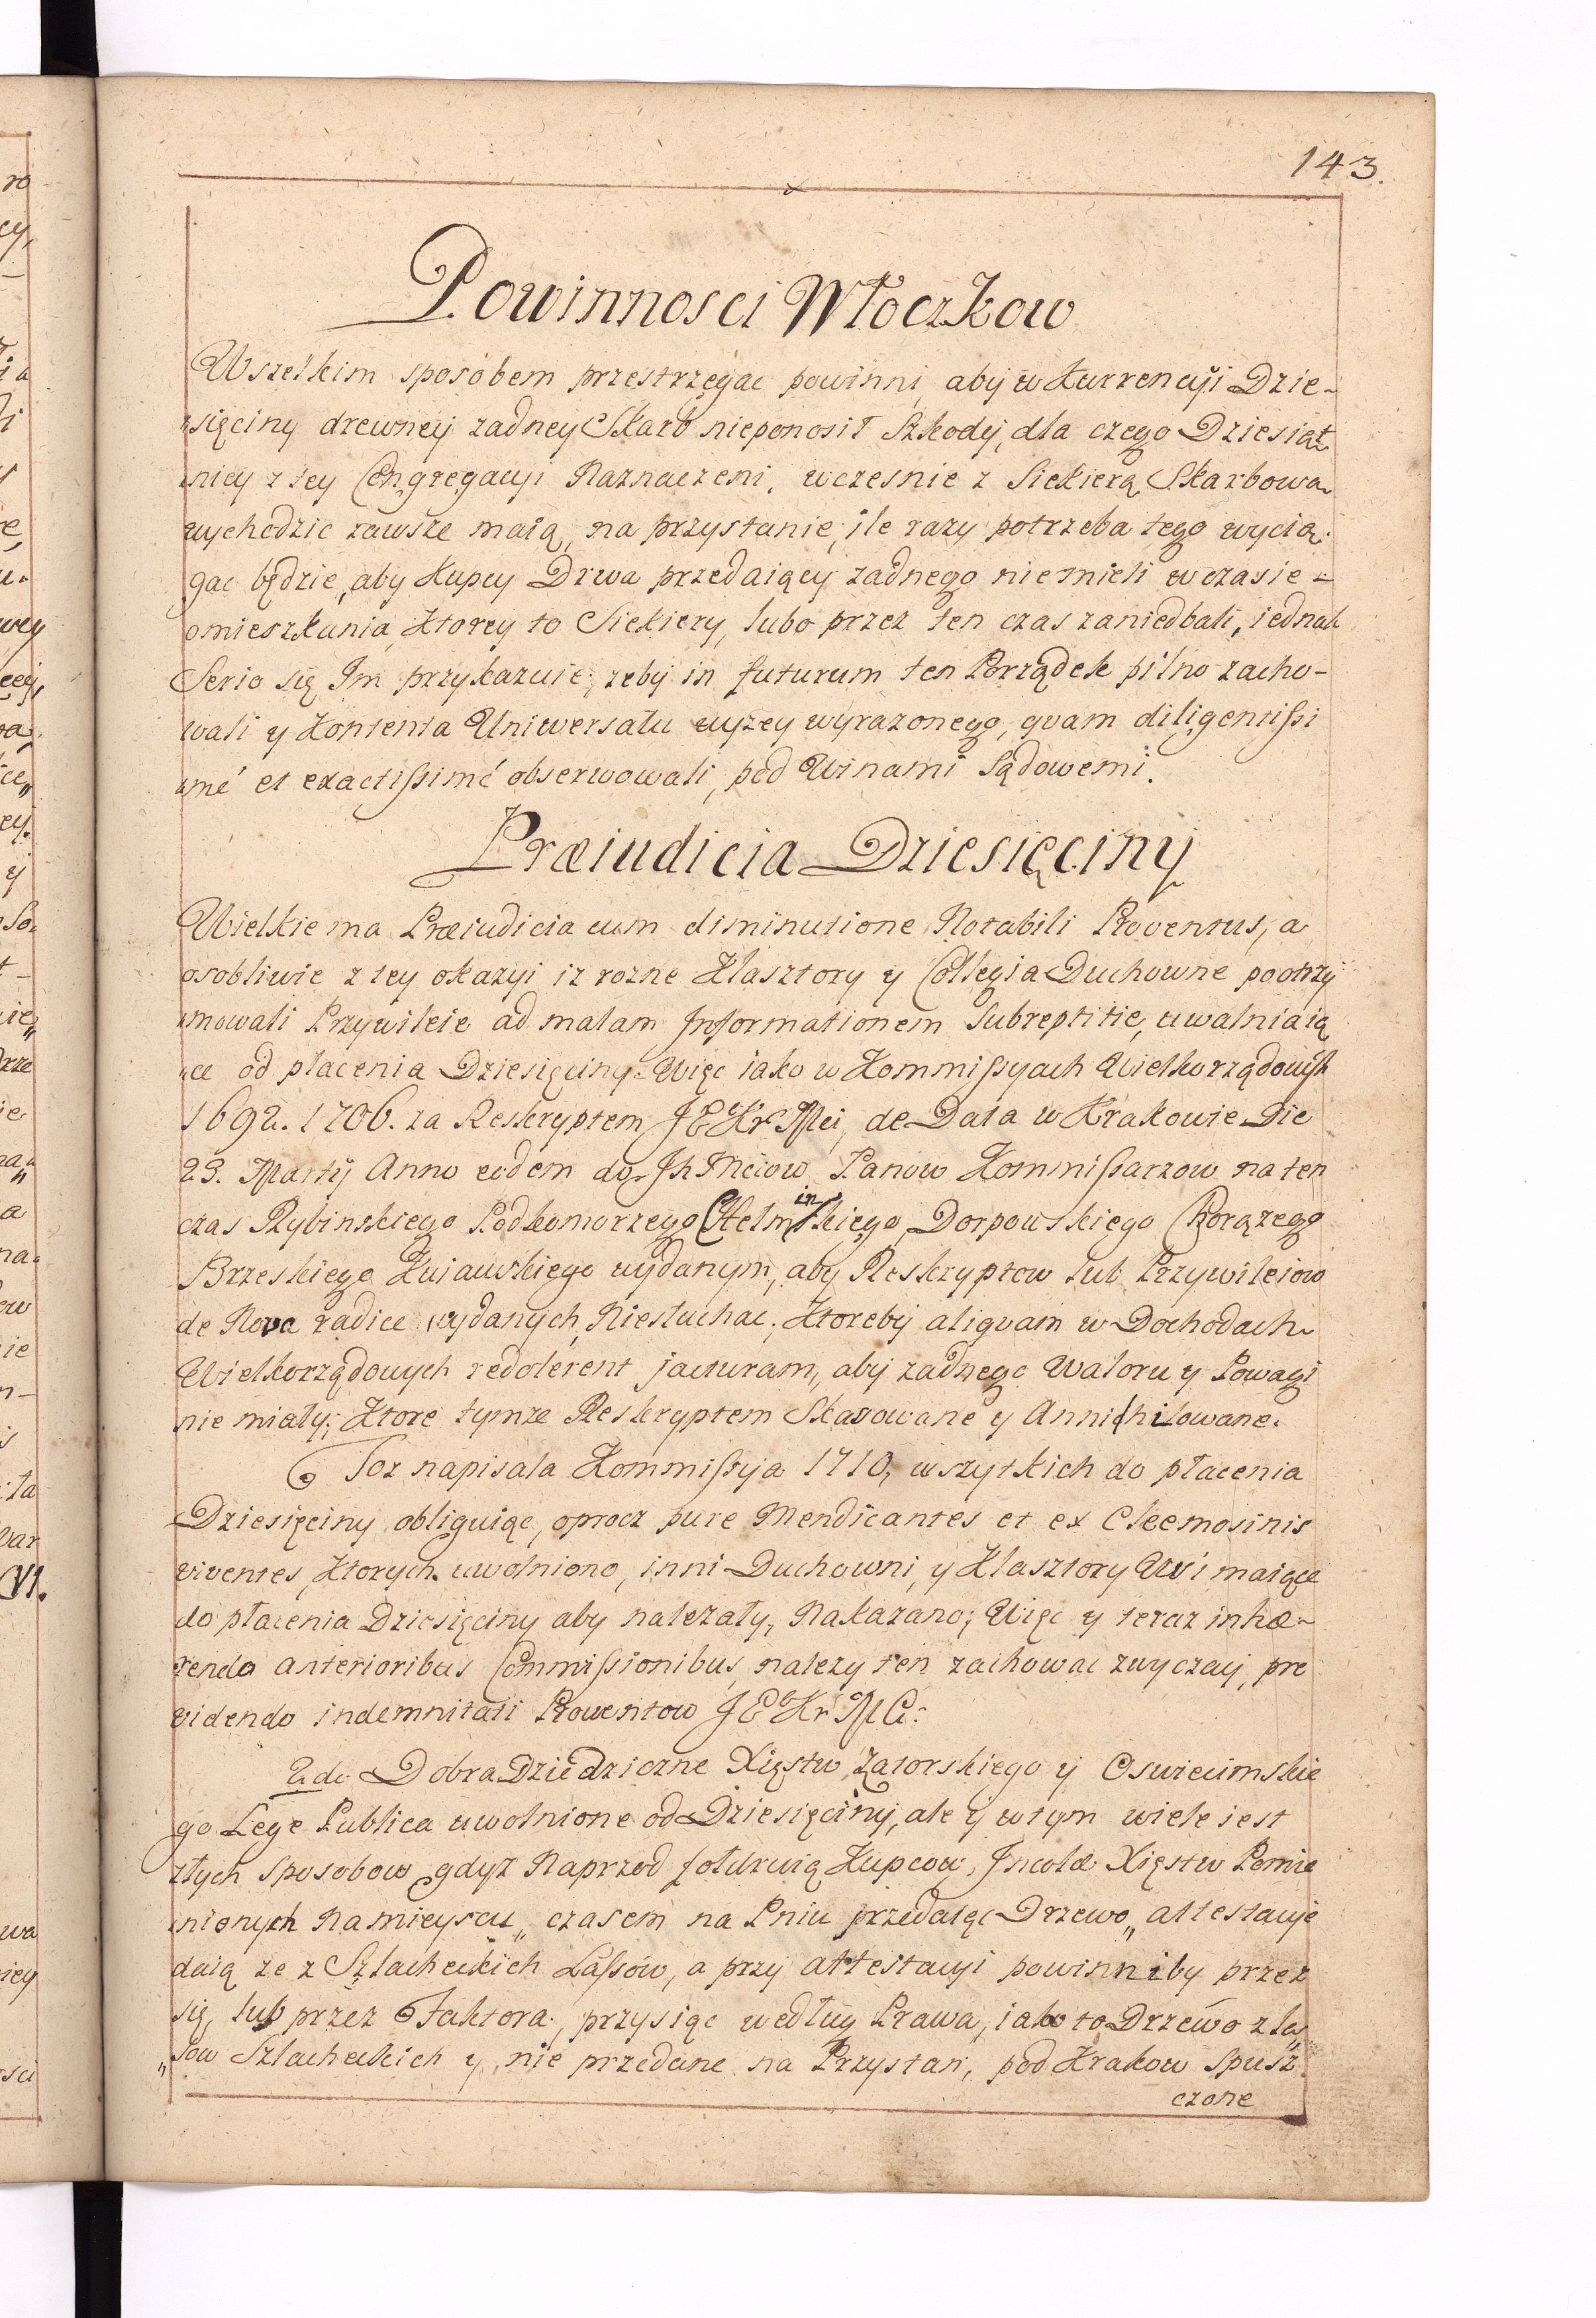 143.
Powinnosci Włoczkow
Wszelkim sposobem przestrzegac powinni, aby w Kurrencyi Dzie-
sięciny drewney zadney Skarb nieponosił Szkody, dla czego Dziesiąt
nicy z tey Congregacyi Naznaczeni, wczesnie z Siekierą Skarbową
wychodzic zawsze maią, na przystanie, ile razy potrzeba tego wycią
gac będzie, aby Kupcy Drwa przedaiący zadnego niemieli w czasie -
omieszkania, Ktorey to Siekiery, lubo przez ten czas zaniedbali, iednak
Serio się Im przykazuie, zeby in futurum ten Porządek pilno zacho-
wali y Kontenta Uniwersału wyzey wyrazonego, quam diligentissi
mé et exactissimé obserwowali, pod Winami Sądowemi.
Præiudicia Dziesięciny
Wielkie ma Præiudicia cum diminutione Notabili Proventus, a
osobliwie z tey okazyi iz rozne Klasztory y Collegia Duchowne pootrzy
mowali Przywileie ad malam Informationem Subreptitie, uwalniaią
ce od płacenia Dziesięciny. Więc iako w Kommissyach Wielkorządowych
1692. 1706. za Reskryptem J K Mci, de Data w Krakowie Die
23. Martÿ Anno eodem do Jh Mciow Panow Kommissarzow na ten
czas Rybinskiego Podkomorzego Chełminskiego, Dorpowskiego Chorązego
Brzeskiego Kuiawskiego wydanym, aby Reskryptow lub Przywileiow
de Nova radice wydanych, Niesłuchac, Ktoreby aliquam w Dochodach
Wielkorządowych redolerent jacturam, aby zadnego Waloru y Powagi
nie miały; Ktore tymze Reskryptem Skasowane y Annichilowane.
Toz napisala Kommissya 1710, wszytkich do płacenia
Dziesięciny obliguiąc, oprocz pure Mendicantes et ex Eleemosinis
viventes, Ktorych uwolniono, inni Duchowni, y Klasztory Wsi maiące
do płacenia Dziesięciny aby nalezały, Nakazano; Więc y teraz inhæ-
rendo anterioribus Commissionibus, nalezy ten zachowac zwyczay, pro
videndo indemnitati Prowentow J K Mci:
2do Dobra Dziedziczne Xięstw Zatorskiego y Oswiecimskie
go Lege Publica uwolnione od Dziesięciny, ale y w tym wiele iest
złych sposobow, gdyz Naprzod foldruią Kupcow, Incolæ Xięstw Pomie
nionych Namieyscu, czasem na Pniu przedaięc Drzewo, attestacye
daią ze z Szlacheckich Lassow, a przy attestacyi powinniby przez
się, lub przez Faktora, przysiąc według Prawa, iako to Drzewo z la
sow Szlacheckich y nie przedane na Przystań, pod Krakow Spusz
czone